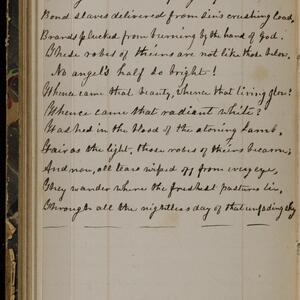 Bond slaves delivered from sin's crushing load,
Brands plucked from burning by the hand of God!
These robes of theirs are not like those below,
No angel's half so bright!
Whence came that beauty, whence that living glow?
Whence came that radiant white?
Washed in the blood of the atoning Lamb,
Fair as the light, those robes of theirs became,
And now, all tears wiped off from every eye,
They wander where the freshest pastures lie,
Through all the nightless day of that unfading sky